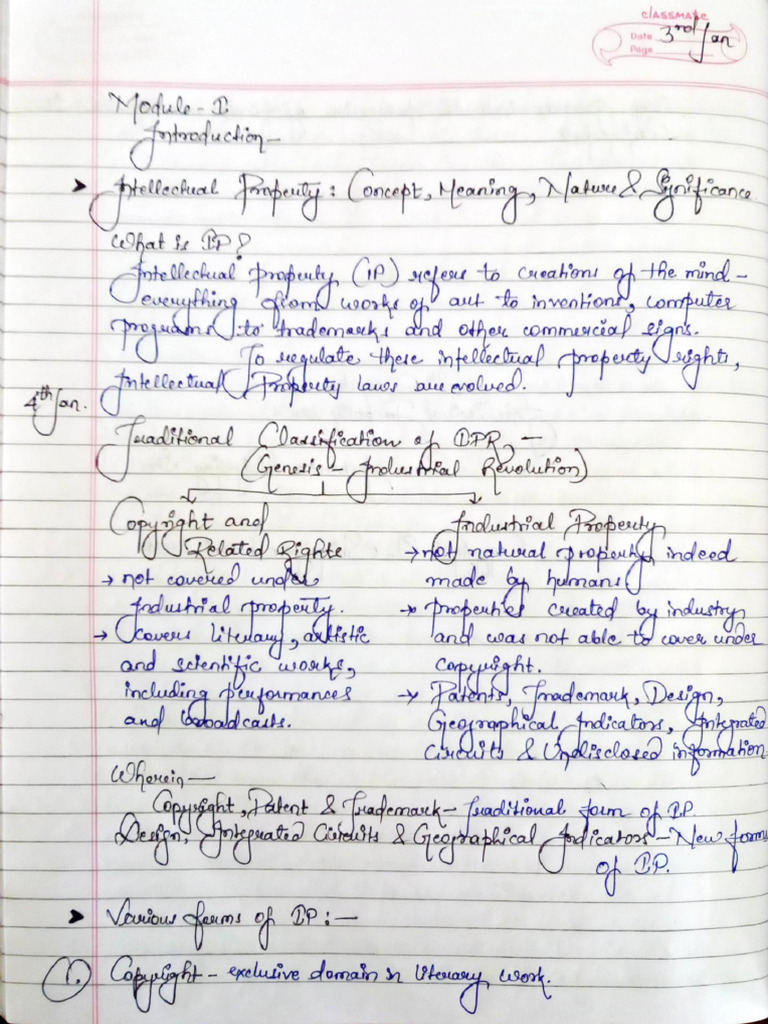 classmate
Date 3rd Jan
Page
Module - I
Introduction -
➤ Intellectual Property : Concept, Meaning, Nature & Significance
What is IP?
Intellectual Property (IP) refers to creations of the mind -
everything from works of art to inventions, computer
programs to trademarks and other commercial signs.
To regulate these intellectual property rights,
Intellectual Property laws are evolved.
4th Jan.
Traditional Classification of IPR, -
(Genesis - Industrial Revolution)
Copyright and
Related Rights
→ not covered under
Industrial property.
→ Covers literary, artistic
and scientific works,
including performances
and broadcasts.
Industrial Property
→ not natural property indeed
made by humans
→ properties created by industry
and was not able to cover under
copyright.
→ Patents, Trademark, Design,
Geographical Indicators, Integrated
Circuits & Undisclosed information
Wherein -
Copyright, Patent & Trademark - Traditional form of IP.
Design, Integrated Circuits & Geographical Indicators - New forms
of IP.
➤ Various forms of IP : -
1. Copyright - exclusive domain in literary work.